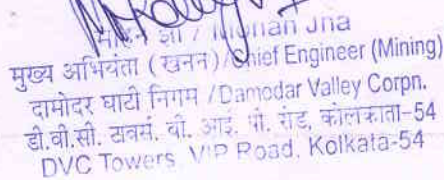 झा / Mohan Jha
मुख्य अभियंता (खनन)/Chief Engineer (Mining)
दामोदर घाटी निगम /Damodar Valley Corpn.
डी.वी.सी. टावर्स, वी. आई. पी. रोड, कोलकाता-54
DVC Towers, VIP Road, Kolkata-54